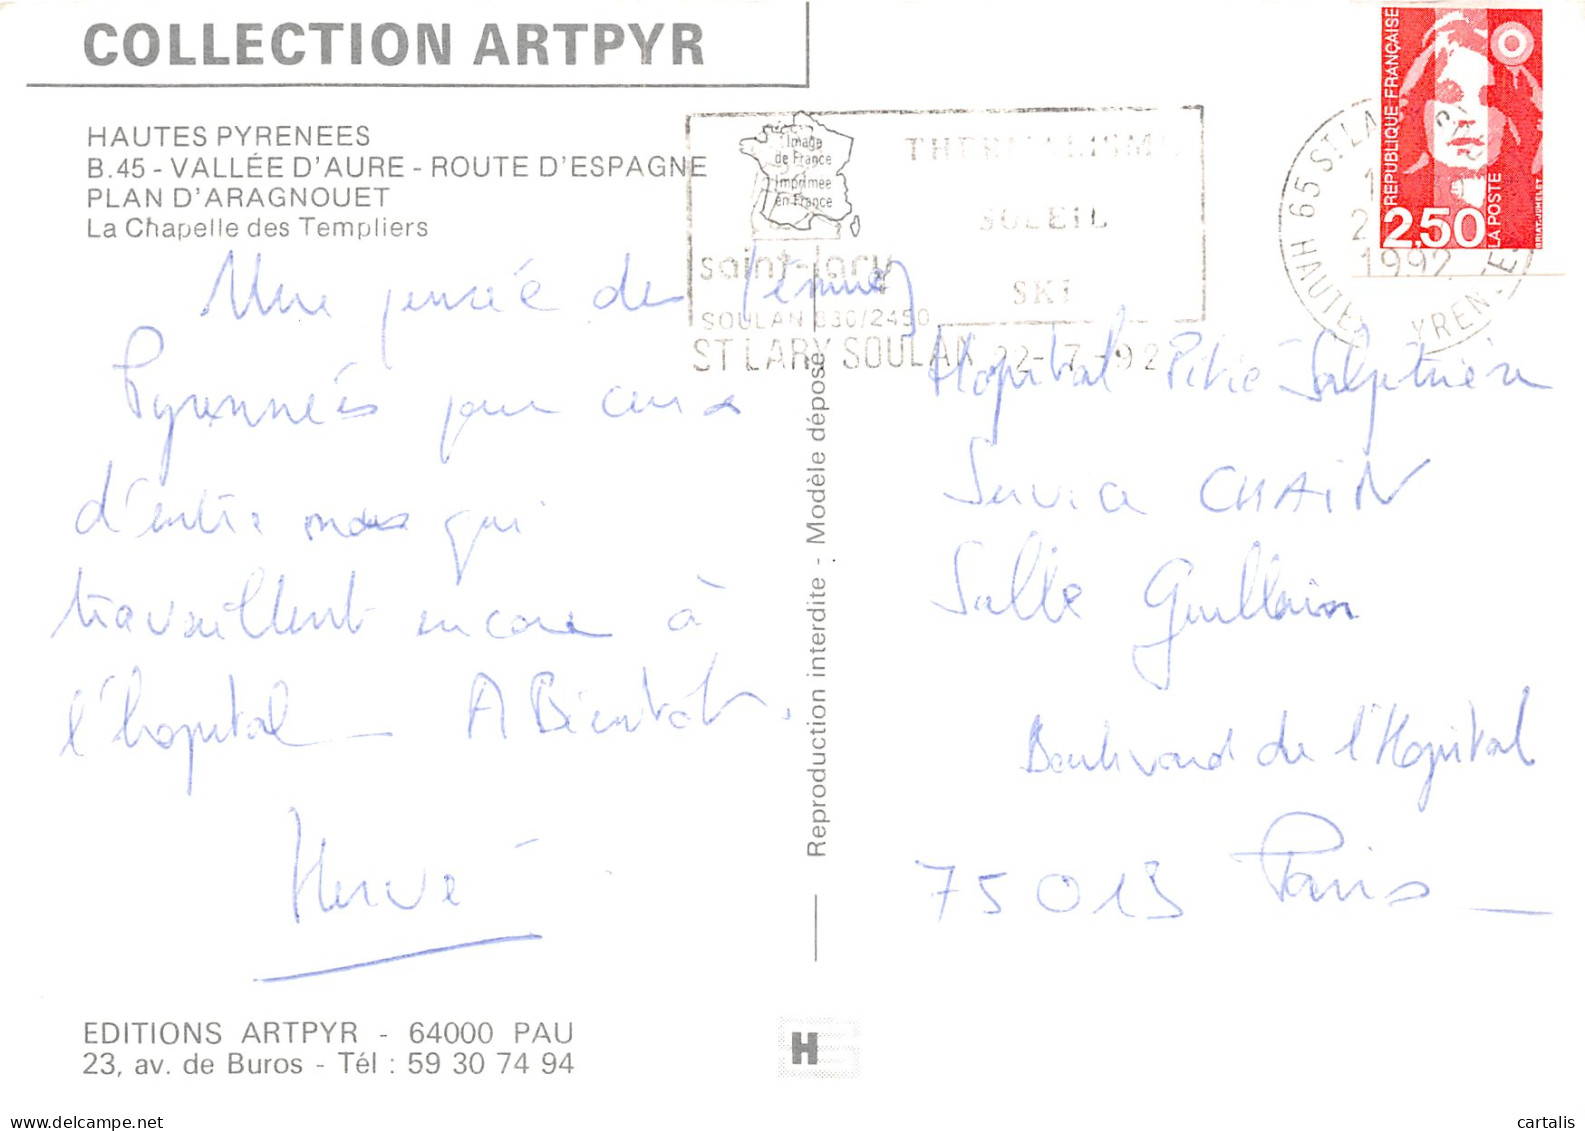 COLLECTION ARTPYR
HAUTES PYRENEES
B.45 - VALLÉE D'AURE - ROUTE D'ESPAGNE
PLAN D'ARAGNOUET
La Chapelle des Templiers
Une pensée des
Pyrennées pour ceux
d'entre nous qui
travaillent encore à
l'hopital - A Bientôt.
Hervé
EDITIONS ARTPYR - 64000 PAU
23, av. de Buros - Tél : 59 30 74 94
l'Image
de France
Imprimée
en France
THERMALISME
SOLEIL
SKI
saint-lary
SOULAN 830/2450
ST LARY SOULAN 22-7-92
Reproduction interdite - Modèle déposé
H
65 ST LA
1992
HAUTES PYRENEES
RÉPUBLIQUE FRANÇAISE
2,50
LA POSTE
BRIAT-JUMELET
Hopital Pitié Salpétrière
Service CHAIN
Salle Guillain
Boulevard de l'Hopital
75013 Paris
delcampe.net
cartalis